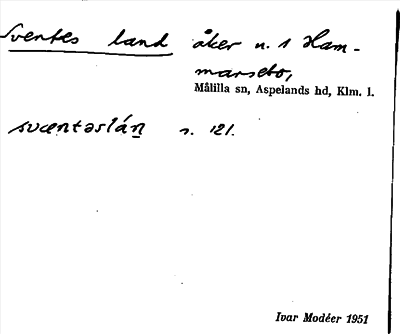 Sventes land åker n. 1 Ham-
marsebo,
Målilla sn, Aspelands hd, Klm. l.
svæntəslán̲ s. 121.
Ivar Modéer 1951